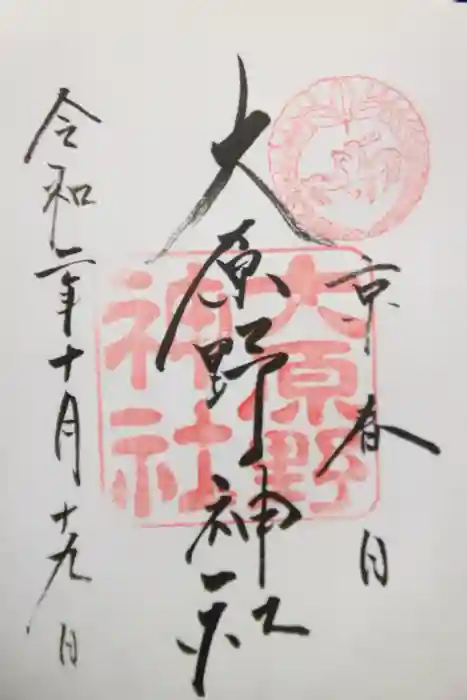 京春日
大原野神社
大原野神社
令和二年十月十九日